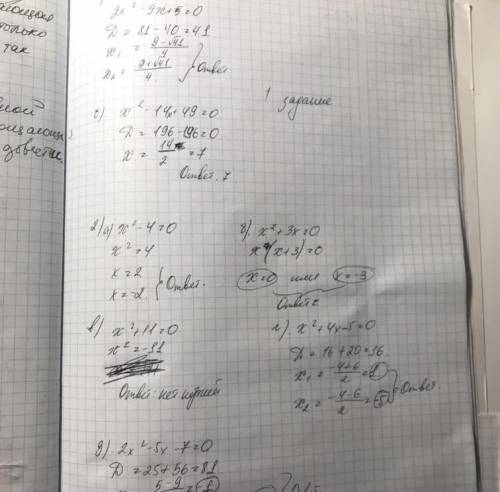 только
так
2x² - 9x + 5 = 0
D = 81 - 40 = 41
x₁ = (9 - √41)/4
x₂ = (9 + √41)/4 } Ответ
1 задание
c) x² - 14x + 49 = 0
D = 196 - 196 = 0
x = 14/2 = 7
Ответ. 7
2) a) x² - 4 = 0
x² = 4
x = 2
x = -2 } Ответ.
б) x² + 3x = 0
x(x + 3) = 0
x = 0 или x = -3
Ответ
в) x² + 11 = 0
x² = -11
Ответ: нет
г) x² + 4x - 5 = 0
D = 16 + 20 = 36
x₁ = (-4 + 6)/2 = 1
x₂ = (-4 - 6)/2 = -5 } Ответ.
д) 2x² - 5x - 7 = 0
D = 25 + 56 = 81
5 - 9